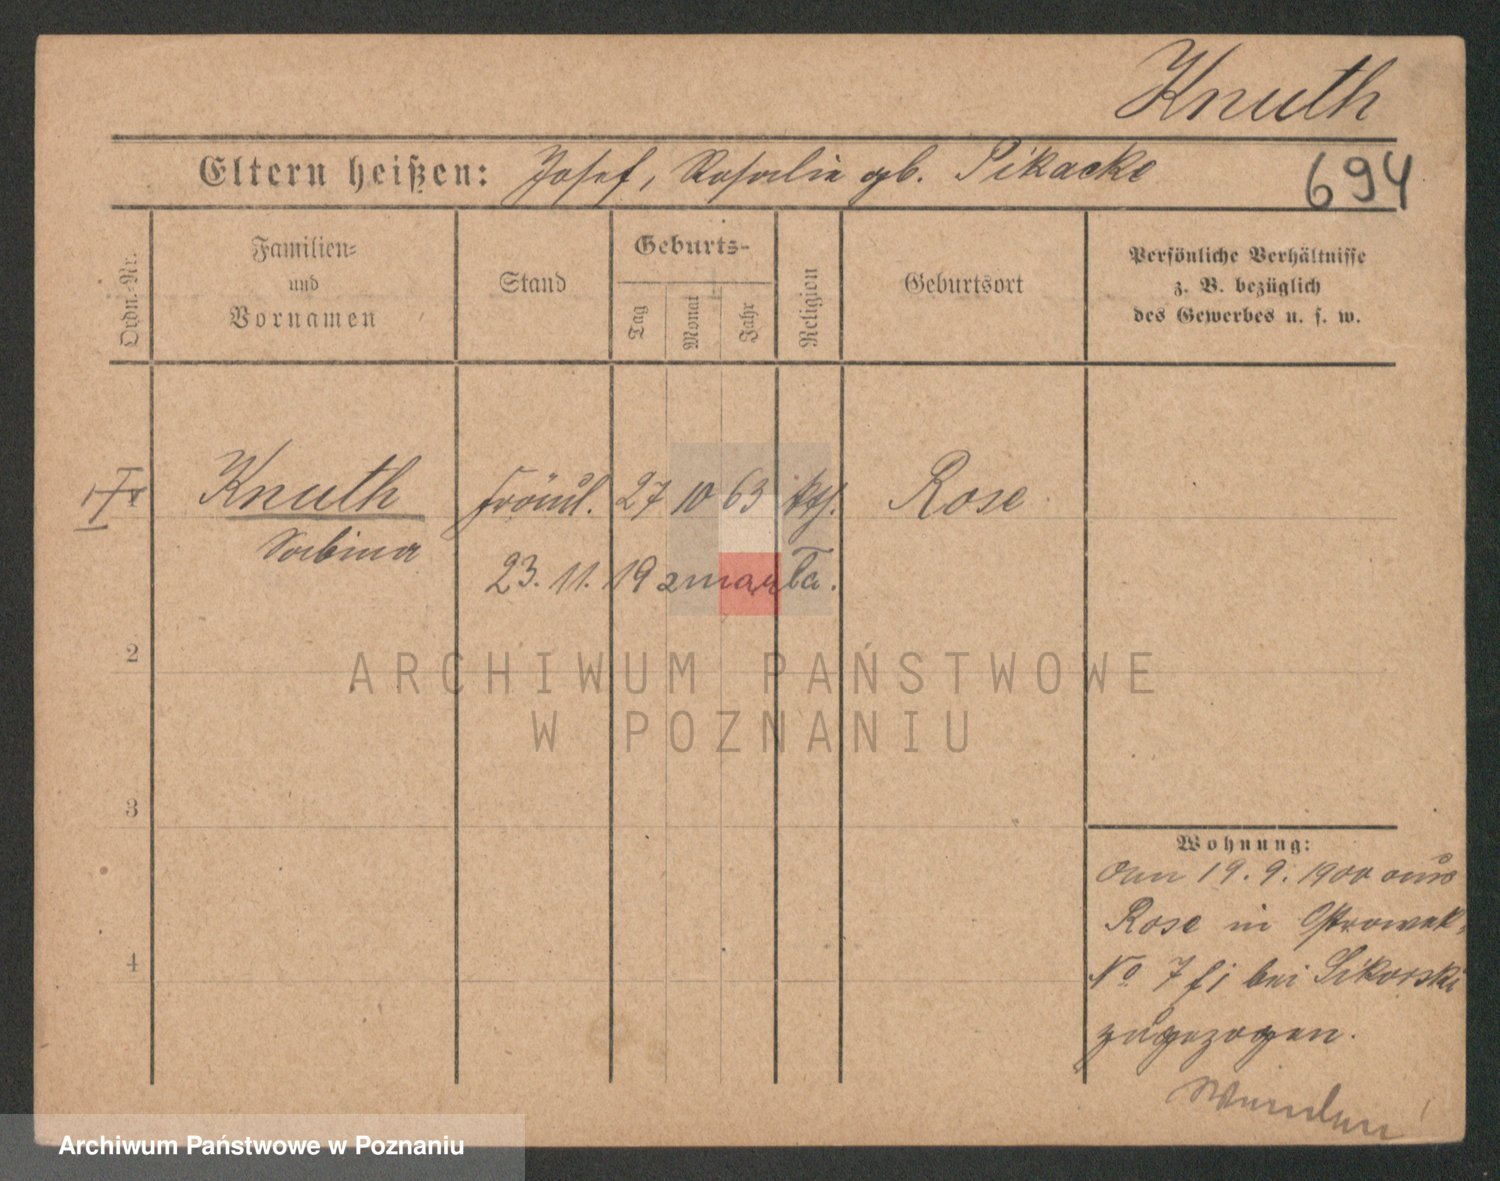 Knuth
Eltern heißen: Josef, Rosalie gb. Pikacke
694
Ordn.-Nr.
Familien-
und
Vornamen
Stand
Geburts-
Tag
Monat
Jahr
Religion
Geburtsort
Persönliche Verhältnisse
z. B. bezüglich
des Gewerbes u. s. w.
Knuth
Sabina
Fräul.
27
10
63
kth.
Rose
23. 11. 19 zmarła.
2
3
4
ARCHIWUM PAŃSTWOWE
W POZNANIU
Wohnung:
Am 19. 9. 1900 aus
Rose in Ostrowek
No 7 bei Sikorski
zugezogen.
Archiwum Państwowe w Poznaniu